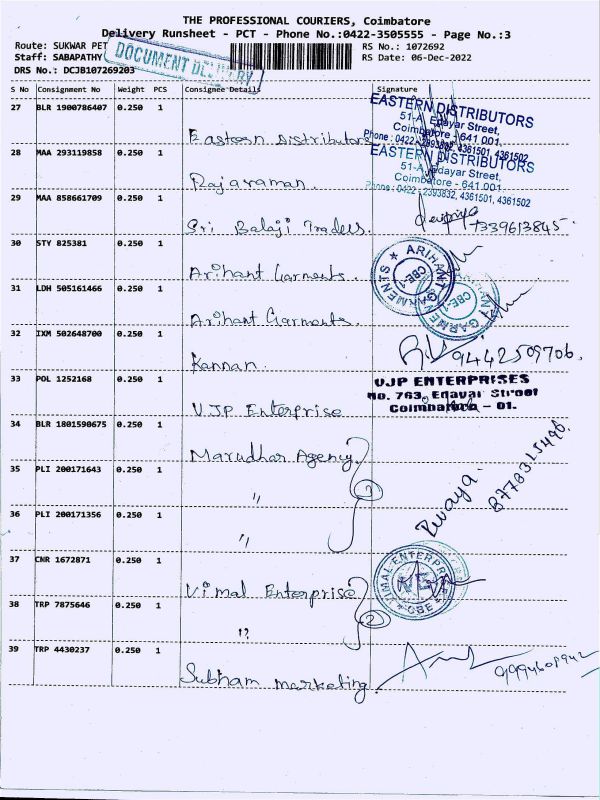 THE PROFESSIONAL COURIERS, Coimbatore
Delivery Runsheet - PCT - Phone No.:0422-3505555 - Page No.:3
Route: SUKWAR PET
RS No.: 1072692
Staff: SABAPATHY
RS Date: 06-Dec-2022
DOCUMENT DELIVERY
DRS No.: DCJB107269203
S No Consignment No Weight PCS Consignee Details Signature
27 BLR 1900786407 0.250 1
Eastern Distributors
EASTERN DISTRIBUTORS
51-A, Edayar Street,
Coimbatore - 641 001.
Phone : 0422 - 2393832, 4361501, 4361502
28 MAA 293119858 0.250 1
Rajaraman.
EASTERN DISTRIBUTORS
51-A, Edayar Street,
Coimbatore - 641 001.
Phone : 0422 - 2393832, 4361501, 4361502
29 MAA 858661709 0.250 1
Sri Balaji Traders.
7339613845.
30 STY 825381 0.250 1
Arihant Garments.
ARIHANT GARMENTS
CBE-1
31 LDH 505161466 0.250 1
Arihant Garments.
ARIHANT GARMENTS
CBE-1
32 IXM 502648700 0.250 1
Kannan.
9442509706.
33 POL 1252168 0.250 1
VJP Enterprise
VJP ENTERPRISES
No. 763, Edayar Street
Coimbatore - 01.
34 BLR 1801590675 0.250 1
Marudhar Agency.
35 PLI 200171643 0.250 1
"
3
36 PLI 200171356 0.250 1
"
37 CNR 1672871 0.250 1
Vimal Enterprise
VIMAL ENTERPRISE
VE
CBE
38 TRP 7875646 0.250 1
"
2
39 TRP 4430237 0.250 1
Subham marketing.